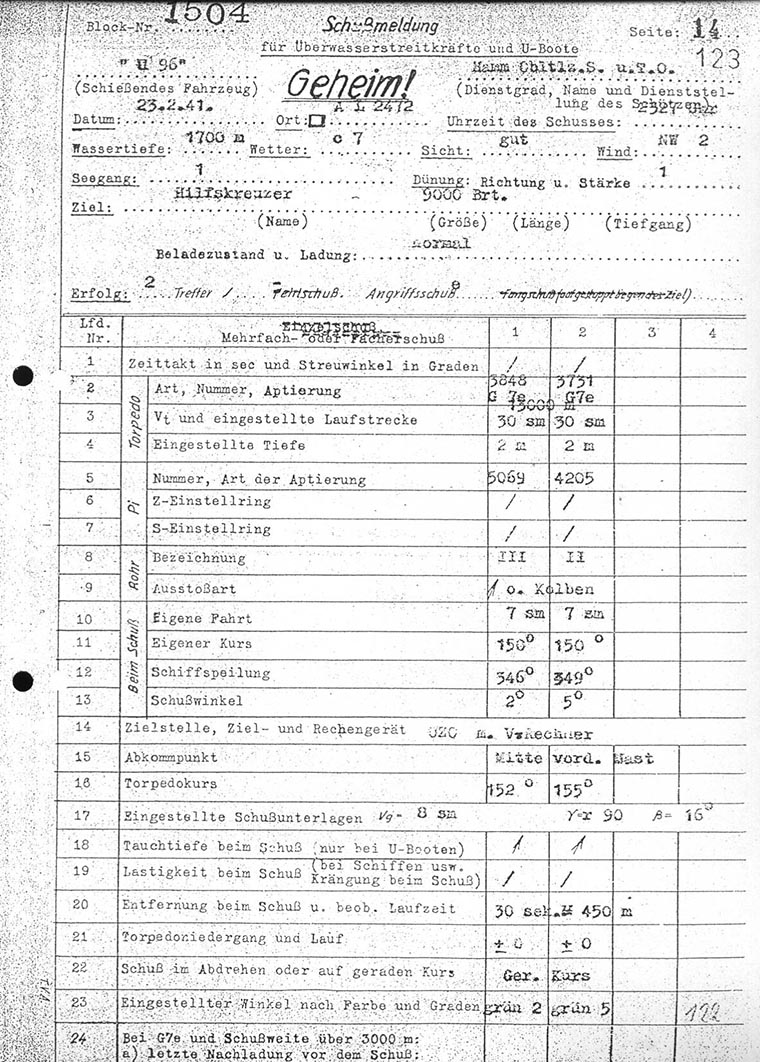 Block-Nr. 1504
Schußmeldung
Seite: 14
für Überwasserstreitkräfte und U-Boote
123
"U 96"
Geheim!
Hamm Obltlz.S. u.T.O.
(Schießendes Fahrzeug)
(Dienstgrad, Name und Dienststel-
lung des Schützen)
Datum: 23.2.41. Ort: A L 2472 Uhrzeit des Schusses: 2327 Uhr
Wassertiefe: 1700 m Wetter: c 7 Sicht: gut Wind: NW 2
Seegang: 1 Dünung: Richtung u. Stärke 1
Ziel: Hilfskreuzer - 9000 Brt.
(Name) (Größe) (Länge) (Tiefgang)
Beladezustand u. Ladung: normal
Erfolg: 2 Treffer / Fehlschuß. Angriffsschuß
Lfd. Nr. Einzelschuß Mehrfach- oder Fächerschuß 1 2 3 4
1 Zeittakt in sec und Streuwinkel in Graden / /
Torpedo
2 Art, Nummer, Aptierung 3848 G 7e 3731 G7e
3 Vt und eingestellte Laufstrecke 30 sm 30 sm
4 Eingestellte Tiefe 2 m 2 m
Pi
5 Nummer, Art der Aptierung 5069 4205
6 Z-Einstellring / /
7 S-Einstellring / /
Rohr
8 Bezeichnung III II
9 Ausstoßart o. Kolben
Beim Schuß
10 Eigene Fahrt 7 sm 7 sm
11 Eigener Kurs 150° 150 °
12 Schiffspeilung 346° 349°
13 Schußwinkel 2° 5°
14 Zielstelle, Ziel- und Rechengerät UZO m. V=Rechner
15 Abkommpunkt Mitte vord. Mast
16 Torpedokurs 152 ° 155°
17 Eingestellte Schußunterlagen Vg= 8 sm γ=r 90 β= 16°
18 Tauchtiefe beim Schuß (nur bei U-Booten) / /
19 Lastigkeit beim Schuß (bei Schiffen usw. Krängung beim Schuß) / /
20 Entfernung beim Schuß u. beob. Laufzeit 30 sek.= 450 m
21 Torpedoniedergang und Lauf ± 0 ± 0
22 Schuß im Abdrehen oder auf geraden Kurs Ger. Kurs
23 Eingestellter Winkel nach Farbe und Graden grün 2 grün 5 122
24 Bei G7e und Schußweite über 3000 m:
a) letzte Nachladung vor dem Schuß: